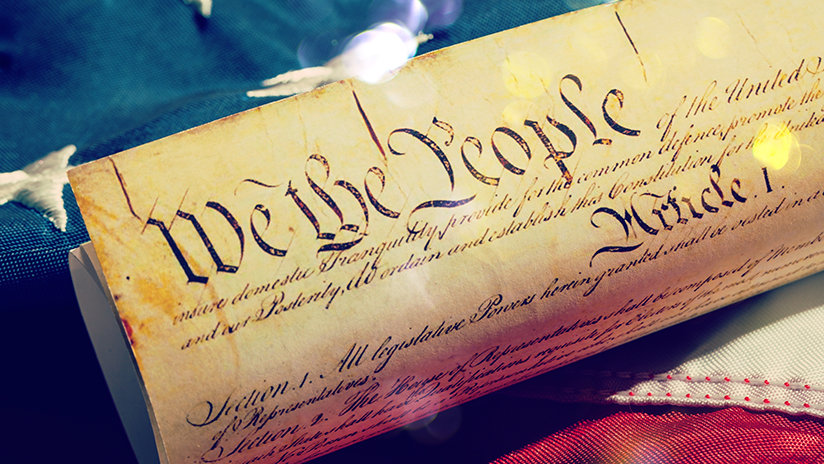 We the People of the United
insure domestic Tranquility, provide for the common defence, promote the
and our Posterity, do ordain and establish this Constitution for the United
Article 1.
Section 1. All legislative Powers herein granted shall be vested in a
of Representatives.
Section 2. The House of Representatives shall be composed of
Qualifications requisite for Electors of the most